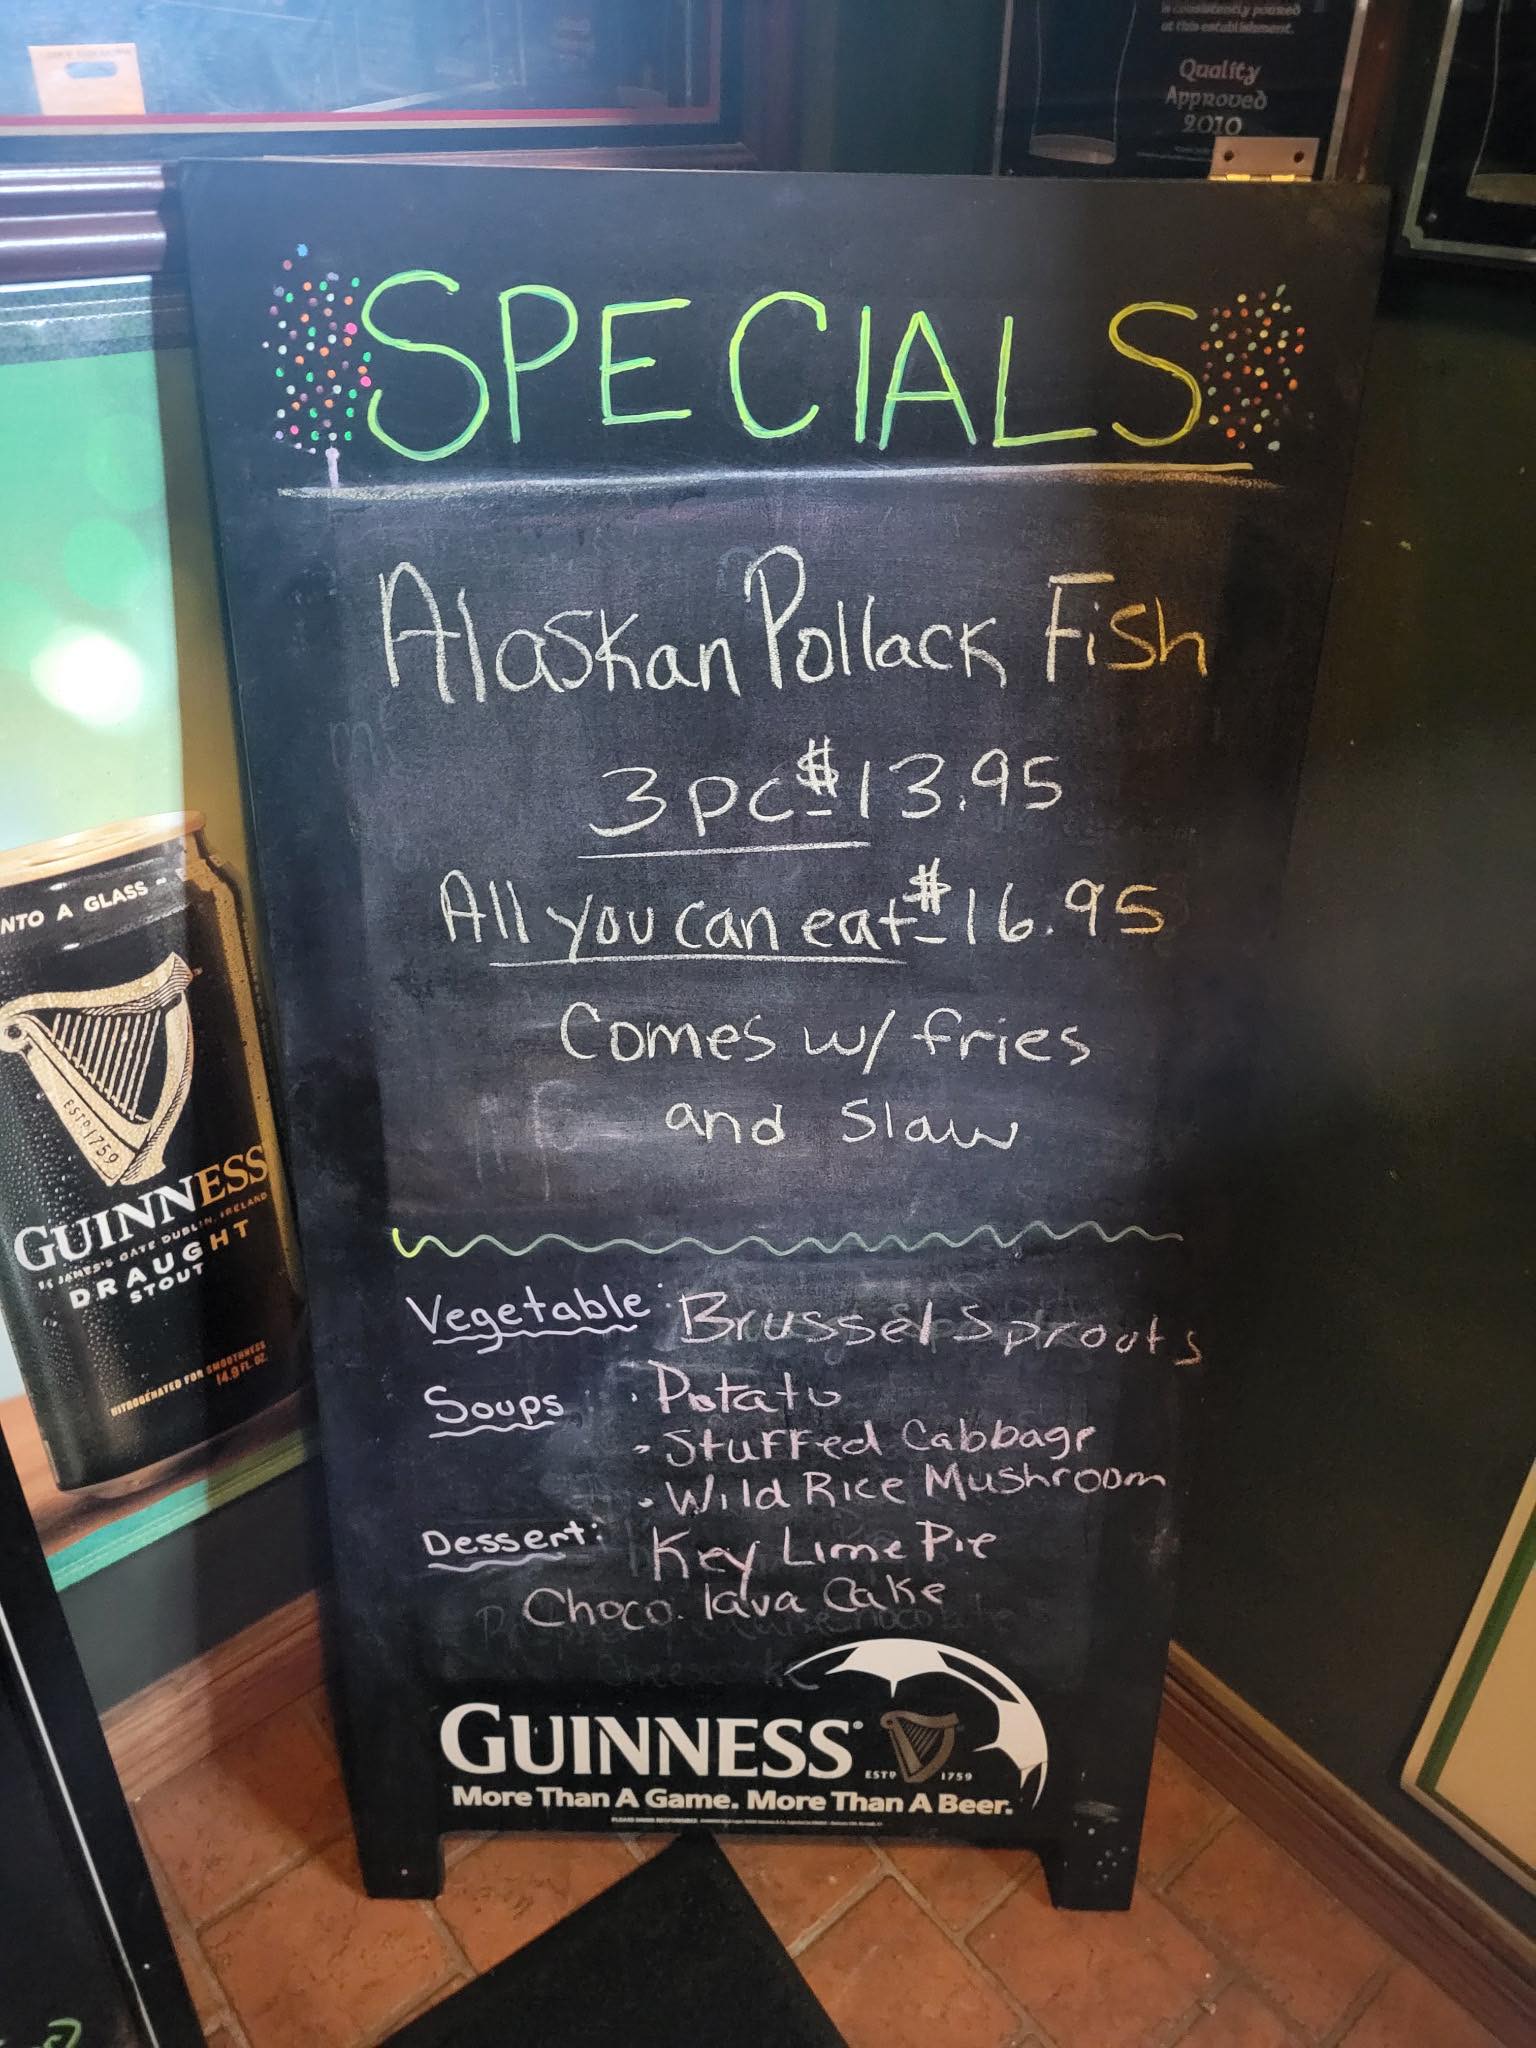 is consistently poured
at this establishment.
Quality
Approved
2010
SPECIALS
Alaskan Pollack Fish
3 pc - $13.95
All you can eat - $16.95
Comes w/ fries
and Slaw
Vegetable: Brussel Sprouts
Soups : • Potato
- Stuffed Cabbage
- Wild Rice Mushroom
Dessert: Key Lime Pie
Choco. lava Cake
GUINNESS
ESTD 1759
More Than A Game. More Than A Beer.
NTO A GLASS
ESTD 1759
GUINNESS
ST JAMES'S GATE DUBLIN, IRELAND
DRAUGHT
STOUT
NITROGENATED FOR SMOOTHNESS
14.9 FL. OZ.